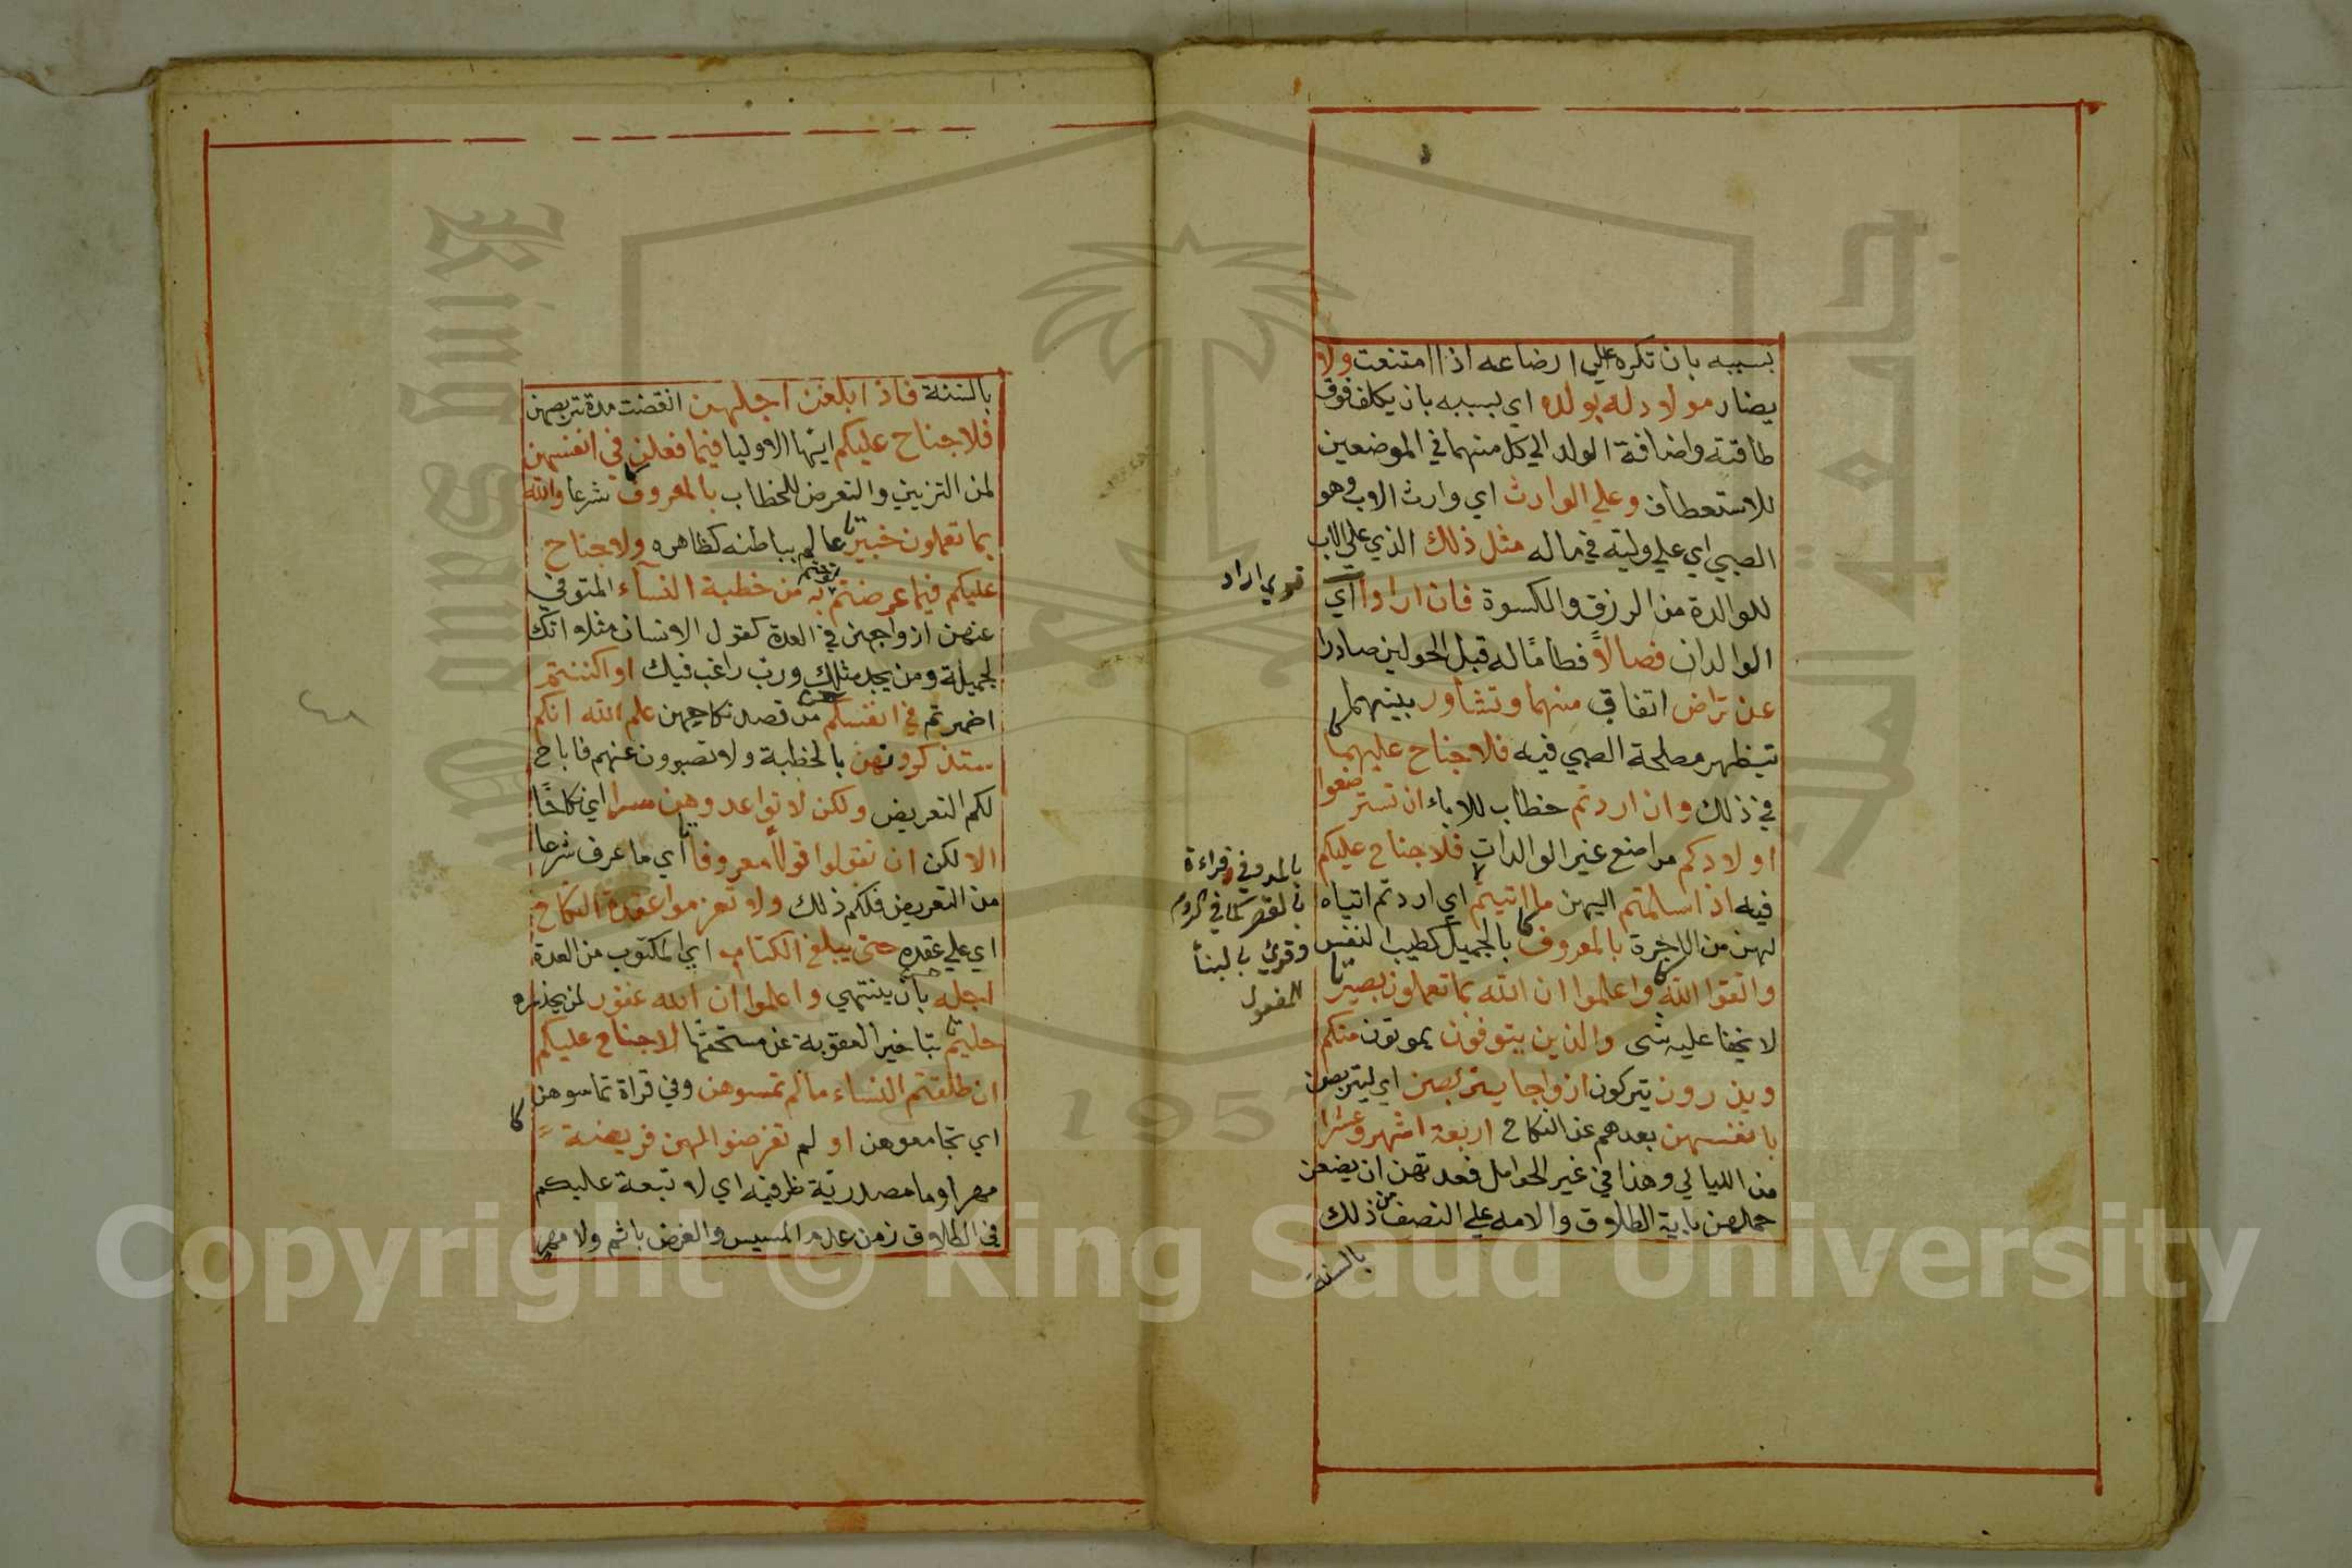 بسببه بان تكره علي ارضاعه اذا امتنعت ولا
يضار مولود له بولده اي بسببه بان يكلف فوق
طاقته واضافة الولد الي كل منهما في الموضعين
للاستعطاف وعلي الوارث اي وارث الاب وهو
الصبي اي علي وليه في ماله مثل ذلك الذي علي الاب
للوالدة من الرزق والكسوة فان ارادا اي
الوالدان فصالاً فطامًا له قبل الحولين صادرا
عن تراض اتفاق منهما وتشاور بينهما
تيظهر مصلحة الصبي فيه فلا جناح عليهما
في ذلك وان اردتم خطاب للاباء ان تسترضعوا
اولادكم مراضع غير الوالدات فلا جناح عليكم
فيه اذا سلمتم اليهن ما اتيتم اي اردتم اتياه
لهن من الاجرة بالمعروف بالجميل كطيب النفس
واتقوا الله واعلموا ان الله بما تعملون بصير
لا يخفا عليه شى والذين يتوفون يموتون منكم
ويذرون يتركون ازواجا يتربصن اي ليتربصن
بانفسهن بعدهم عن النكاح اربعة اشهر وعشرا
من الليالي وهذا في غير الحوامل فعدتهن ان يضعن
حملهن باية الطلاق والامه علي النصف من ذلك
بالسنة
بالمد وفي قراءة
بالقصر كما في الروم
وقرئ بالبنأ
للمفعول
بالسنة فاذا بلغن اجلهن انقضت مدة تربصهن
فلا جناح عليكم ايها الاوليا فيما فعلن في انفسهن
لمن التزيين والتعرض للخطاب بالمعروف شرعا والله
بما تعملون خبير عالم بباطنه كظاهره ولا جناح
عليكم فيما عرضتم به من خطبة النسآء المتوفي
عنهن ازواجهن في العدة كقول الانسان مثلا انك
لجميلة ومن يجد مثلك ورب راغب فيك او اكننتم
اضمرتم في انفسكم من قصد نكاحهن علم الله انكم
ستذكرونهن بالخطبة ولا تصبرون عنهم فاباح
لكم التعريض ولكن لا تواعدوهن سرا اي نكاحًا
الا لكن ان تقولوا قولاً معروفا اي ما عرف شرعا
من التعريض فلكم ذلك ولا تعزموا عقدة النكاح
اي علي عقده حتى يبلغ الكتاب اي المكتوب من العدة
اجله بان ينتهي واعلموا ان الله غفور لمن يحذره
حليم بتاخير العقوبة عن مستحقها لا جناح عليكم
ان طلقتم النساء ما لم تمسوهن وفي قراة تماسوهن
اي تجامعوهن او لم تفرضوا لهن فريضة
مهرا وما مصدرية ظرفيه اي لا تبعة عليكم
في الطلاق زمن عدم المسيس والفرض باثم ولا مهر
٤٨
King Saud University
1957
Copyright © King Saud University